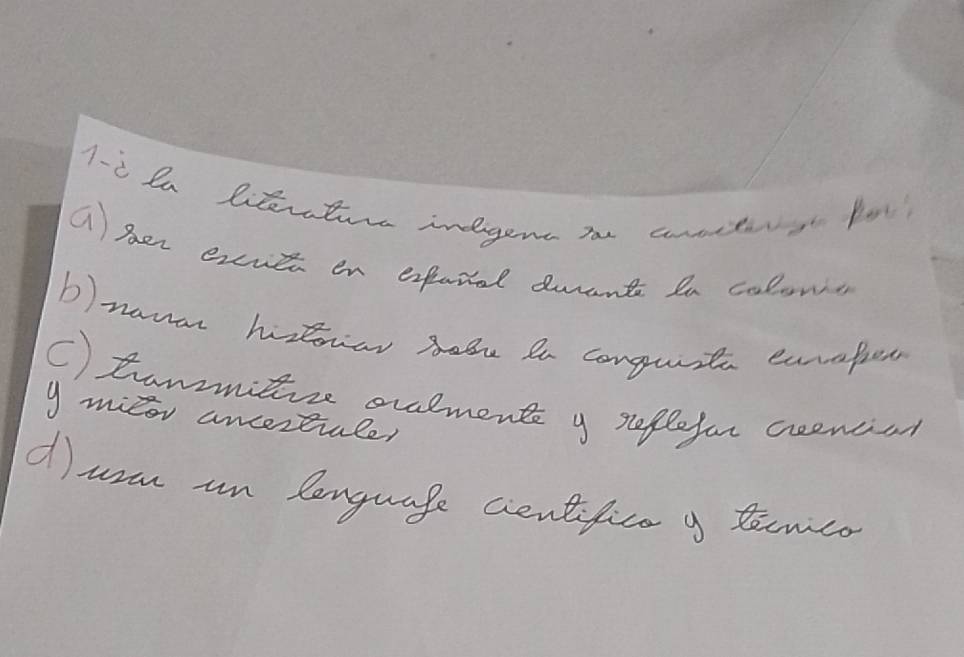 1-¿ La literatura indigena se caracteriza por:
a) ser escrita en español durante la colonia
b) narrar historias sobre la conquista europea
c) transmitirse oralmente y reflejar creencias
y mitos ancestrales
d) usar un lenguaje cientifico y técnico